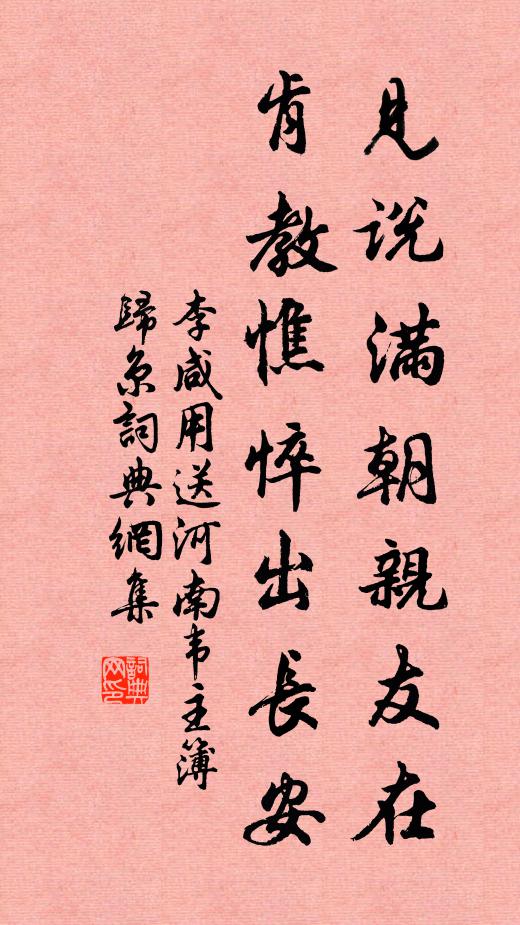 見説滿朝親友在
肯教憔悴出長安
李咸用送河南韦主簿
歸京詞典網集
詞典网印